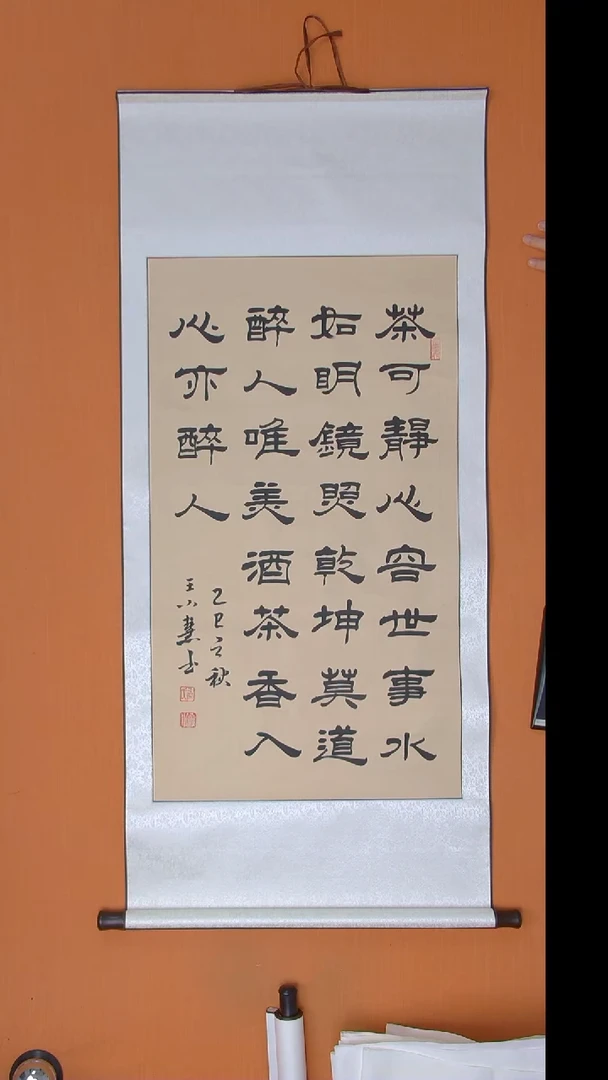 茶可静心容世事水
如明鏡照乾坤莫道
醉人唯美酒茶香入
心亦醉人
乙巳立秋
王小慧书